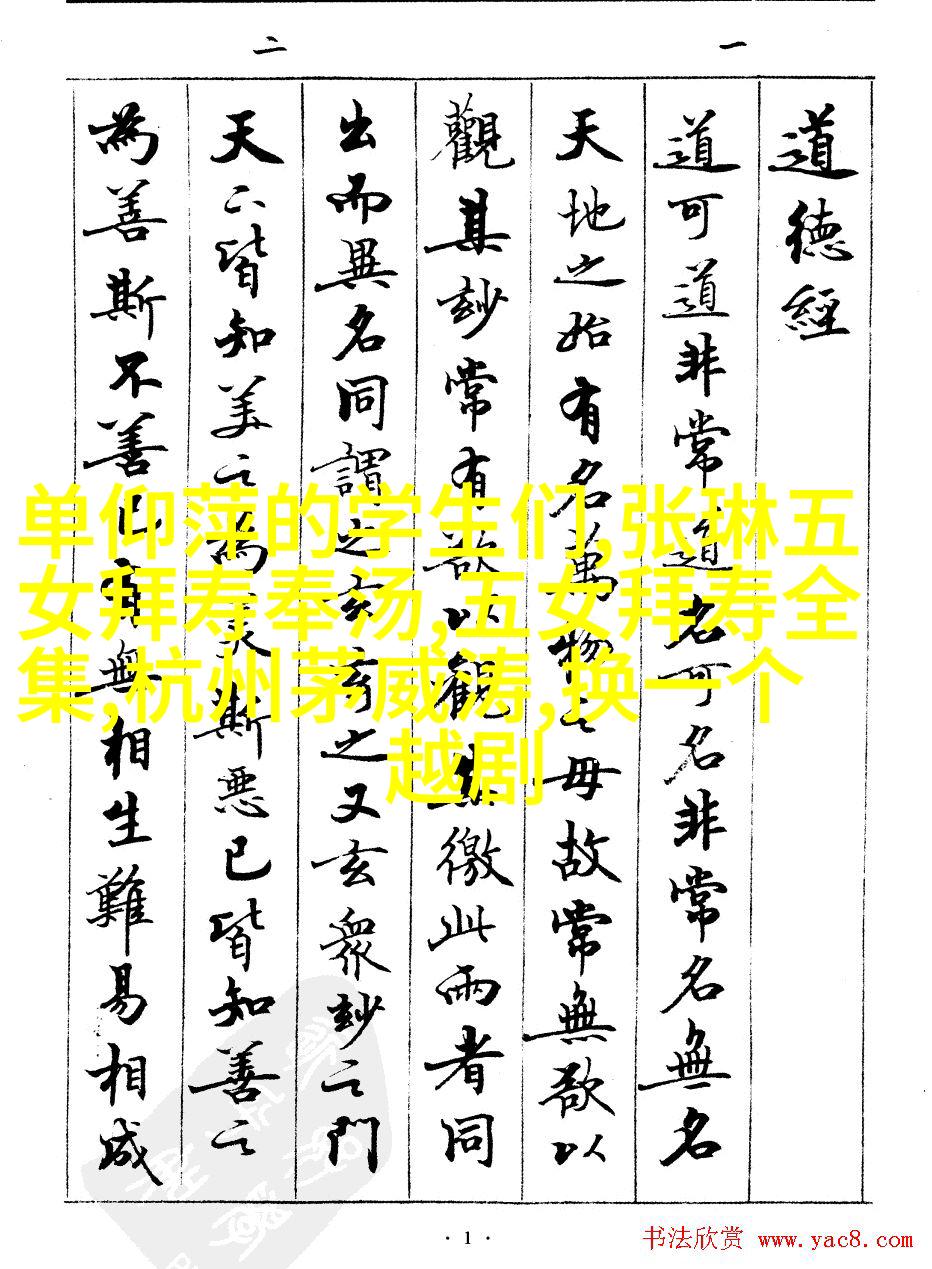 一
二
道德經
道可道非常道名可名非常名無名
天地之始有名萬物之母故常無欲以
觀其玅常有欲以觀其徼此兩者同
出而異名同謂之玄玄之又玄衆玅之門
天下皆知美之為美斯惡已皆知善之
為善斯不善已有無相生難易相成
单仰萍的学生们,张琳五
女拜寿奉汤,五女拜寿全
集,杭州茅威涛,换一个
越剧
· 1 ·
书法欣赏 www.yac8.com